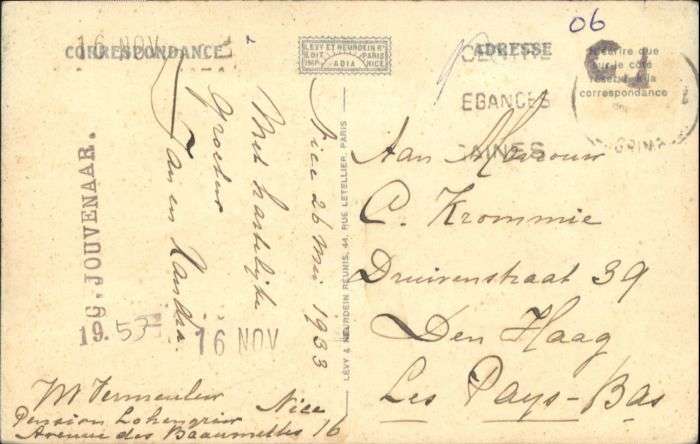 16 NOV
06
CORRESPONDANCE
LEVY ET NEURDEIN Rs
EDIT. PARIS
IMP. ADIA NICE
ADRESSE
Ne écrire que
sur le côté
réservé à la
correspondance
EGANCES
AINES
GRIMA
Nice 26 Mei 1933
Met hartelijke
Groeten
Jan en Xandra.
G. JOUVENAAR.
19.53
16 NOV
LEVY & NEURDEIN REUNIS, 44, RUE LETELLIER, PARIS
Aan Mevrouw
C. Krommie
Druivenstraat 39
Den Haag
Les Pays-Bas
M Vermeulen
Pension Lohengrin Nice
Avenue des Baaumettes 16